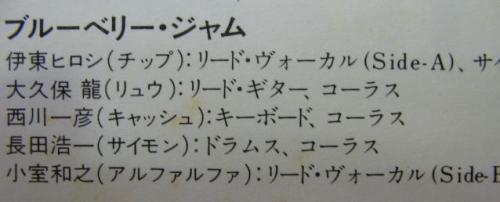 ブルーベリー・ジャム
伊東ヒロシ(チップ):リード・ヴォーカル(Side-A)、サイ
大久保 龍(リュウ):リード・ギター、コーラス
西川一彦(キャッシュ):キーボード、コーラス
長田浩一(サイモン):ドラムス、コーラス
小室和之(アルファルファ):リード・ヴォーカル(Side-B